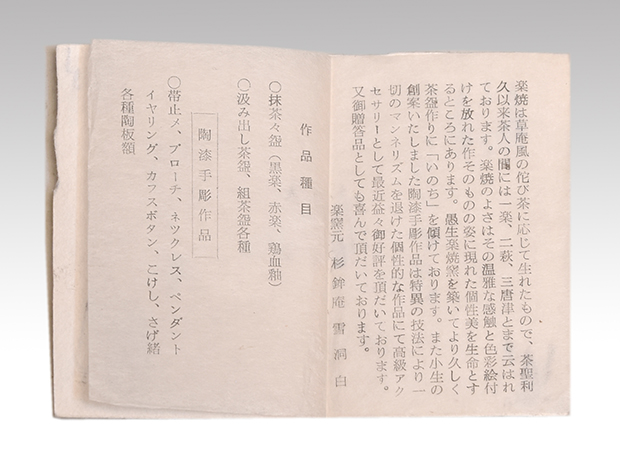 楽焼は草庵風の侘び茶に応じて生れたもので、茶聖利
久以来茶人の間には一楽、二萩、三唐津とまで云はれ
ております。楽焼のよさはその温雅な感触と色彩絵付
けを放れた作そのものの姿に現れた個性美を生命とす
るところにあります。愚生楽焼窯を築いてより久しく
茶盌作りに「いのち」を傾けております。また小生の
創案いたしました陶漆手彫作品は特異の技法により一
切のマンネリズムを退けた個性的な作品にて高級アク
セサリーとして最近益々御好評を頂だいております。
又御贈答品としても喜んで頂だいております。
楽窯元 杉鉾庵 雪洞 白
作品種目
○抹茶々盌(黒楽、赤楽、鶏血釉)
○汲み出し茶盌、組茶盌各種
陶漆手彫作品
○帯止メ、ブローチ、ネックレス、ペンダント
イヤリング、カフスボタン、こけし、さげ緒
各種陶板額